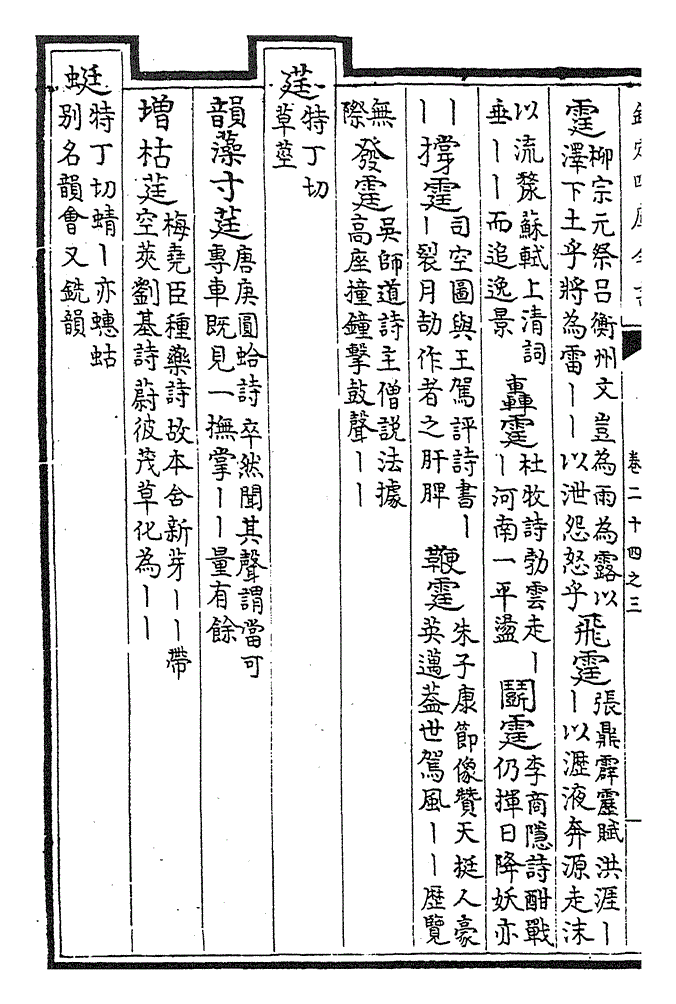 欽定四庫全書
卷二十四之三
霆 柳宗元祭呂衡州文豈為雨為露以澤下土乎將為雷丨丨以泄怨怒乎 飛霆 張鼎霹靂賦洪涯丨丨以瀝液奔源走沫
以流漦蘇軾上清詞垂丨丨而追逸景 轟霆 杜牧詩勃雲走丨丨河南一平盪 鬭霆 李商隱詩酣戰仍揮日降妖亦
丨丨 撑霆 司空圖與王駕評詩書丨丨裂月劫作者之肝脾 鞭霆 朱子康節像贊天挺人豪英邁葢世駕風丨丨歴覽
無際 發霆 吳師道詩主僧説法據高座撞鐘擊鼓聲丨丨
莛 特丁切草莖
韻藻寸莛 唐庚圓蛤詩卒然聞其聲謂當可專車既見一撫掌丨丨量有餘
増枯莛 梅堯臣種藥詩故本含新芽丨丨帶空莢劉基詩蔚彼茂草化為丨丨
蜓 特丁切蜻丨亦蟪蛄别名韻會又銑韻